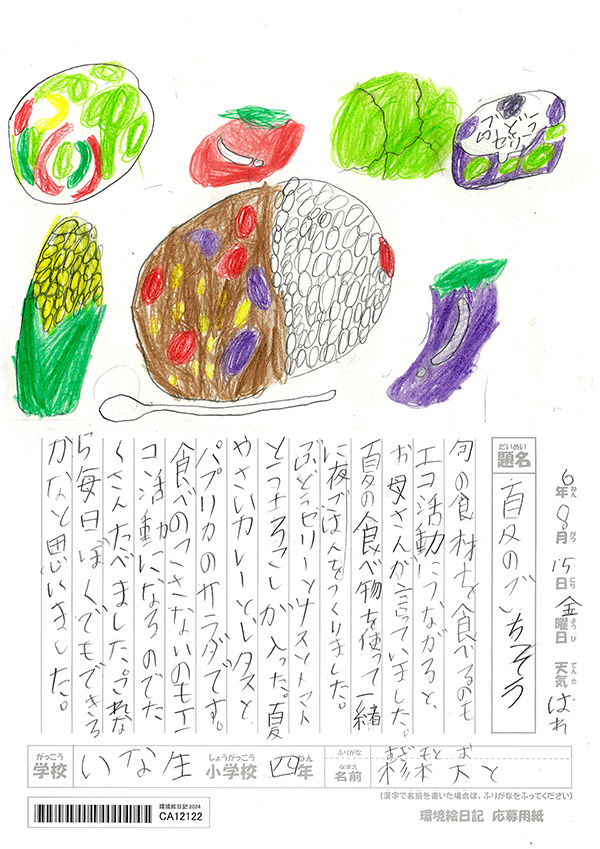 ぶどう
ゼリー
6年8月15日金曜日 天気 はれ
ねん がつ にち ようび てんき
だいめい
題名
夏のごちそう
旬の食材を食べるのも
エコ活動につながると、
お母さんが言っていました。
夏の食べ物を使って一緒
に夜ごはんをつくりました。
ぶどうゼリーとナスとトマト
とうもろこしが入った。夏
やさいカレーとレタスと
パプリカのサラダです。
食べのこさないのもエ
コ活動になるのでた
くさんたべました。これな
ら毎日ぼくでもできる
かなと思いました。
がっこう しょうがっこう ねん ふりがな
学校 いな生 小学校 四年
なまえ
名前 杉本 大と
(漢字で名前を書いた場合は、ふりがなをふってください)
環境絵日記 2024
CA12122
環境絵日記 応募用紙